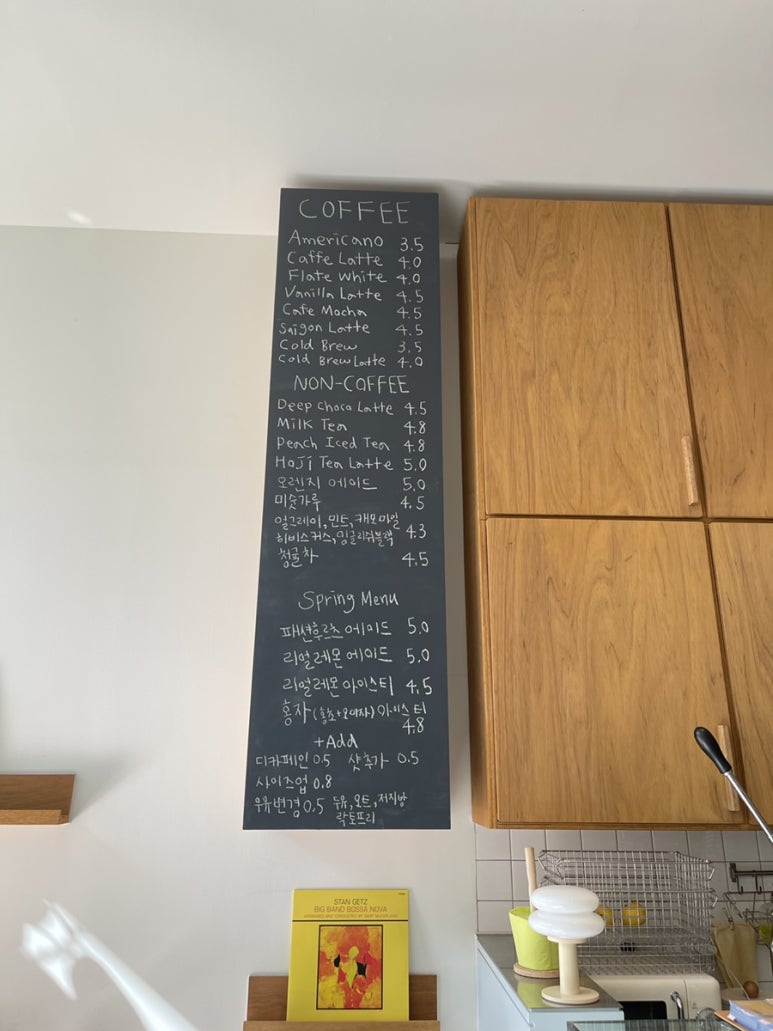 COFFEE
Americano 3.5
Caffe Latte 4.0
Flate White 4.0
Vanilla Latte 4.5
Cafe Mocha 4.5
Saigon Latte 4.5
Cold Brew 3.5
Cold Brew Latte 4.0
NON-COFFEE
Deep Choco Latte 4.5
Milk Tea 4.8
Peach Iced Tea 4.8
Hoji Tea Latte 5.0
오렌지 에이드 5.0
미숫가루 4.5
얼그레이, 민트, 캐모마일
히비스커스, 잉글리쉬블랙 4.3
청귤차 4.5
Spring Menu
패션후르츠 에이드 5.0
리얼레몬 에이드 5.0
리얼레몬 아이스티 4.5
홍자 (홍초+오미자) 아이스티
4.8
+Add
디카페인 0.5 샷추가 0.5
사이즈업 0.8
우유변경 0.5 두유, 오트, 저지방
락토프리
STAN GETZ
BIG BAND BOSSA NOVA
ARRANGED AND CONDUCTED BY GARY McFARLAND